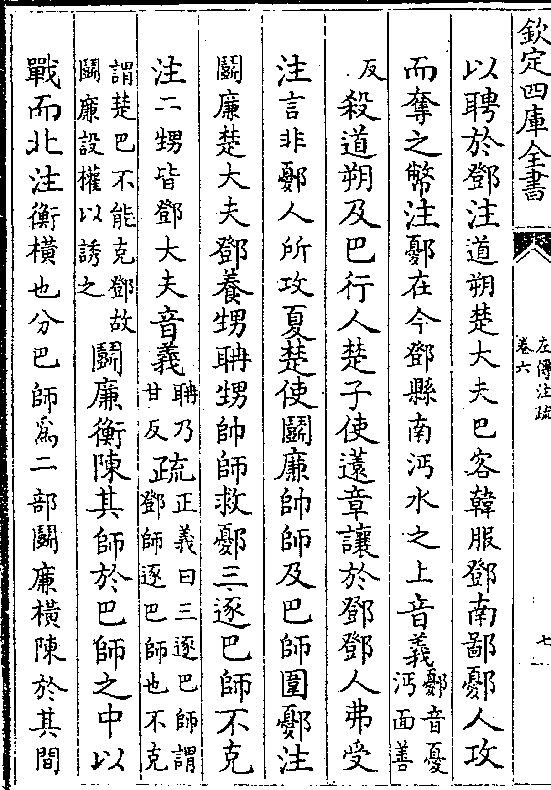 欽定四庫全書
左傳注疏
卷六
七
以聘於鄧注道朔楚大夫巴客韓服鄧南鄙鄾人攻
而奪之幣注鄾在今鄧縣南沔水之上音義鄾音憂
沔面善
反殺道朔及巴行人楚子使薳章讓於鄧鄧人弗受
注言非鄾人所攻夏楚使鬬廉帥師及巴師圍鄾注
鬬廉楚大夫鄧養甥聃甥帥師救鄾三逐巴師不克
注二甥皆鄧大夫音義聃乃
甘反疏正義曰三逐巴師謂
鄧師逐巴師也不克
謂楚巴不能克鄧故
鬬廉設權以誘之鬬廉衡陳其師於巴師之中以
戰而北注衡橫也分巴師爲二部鬬廉橫陳於其間